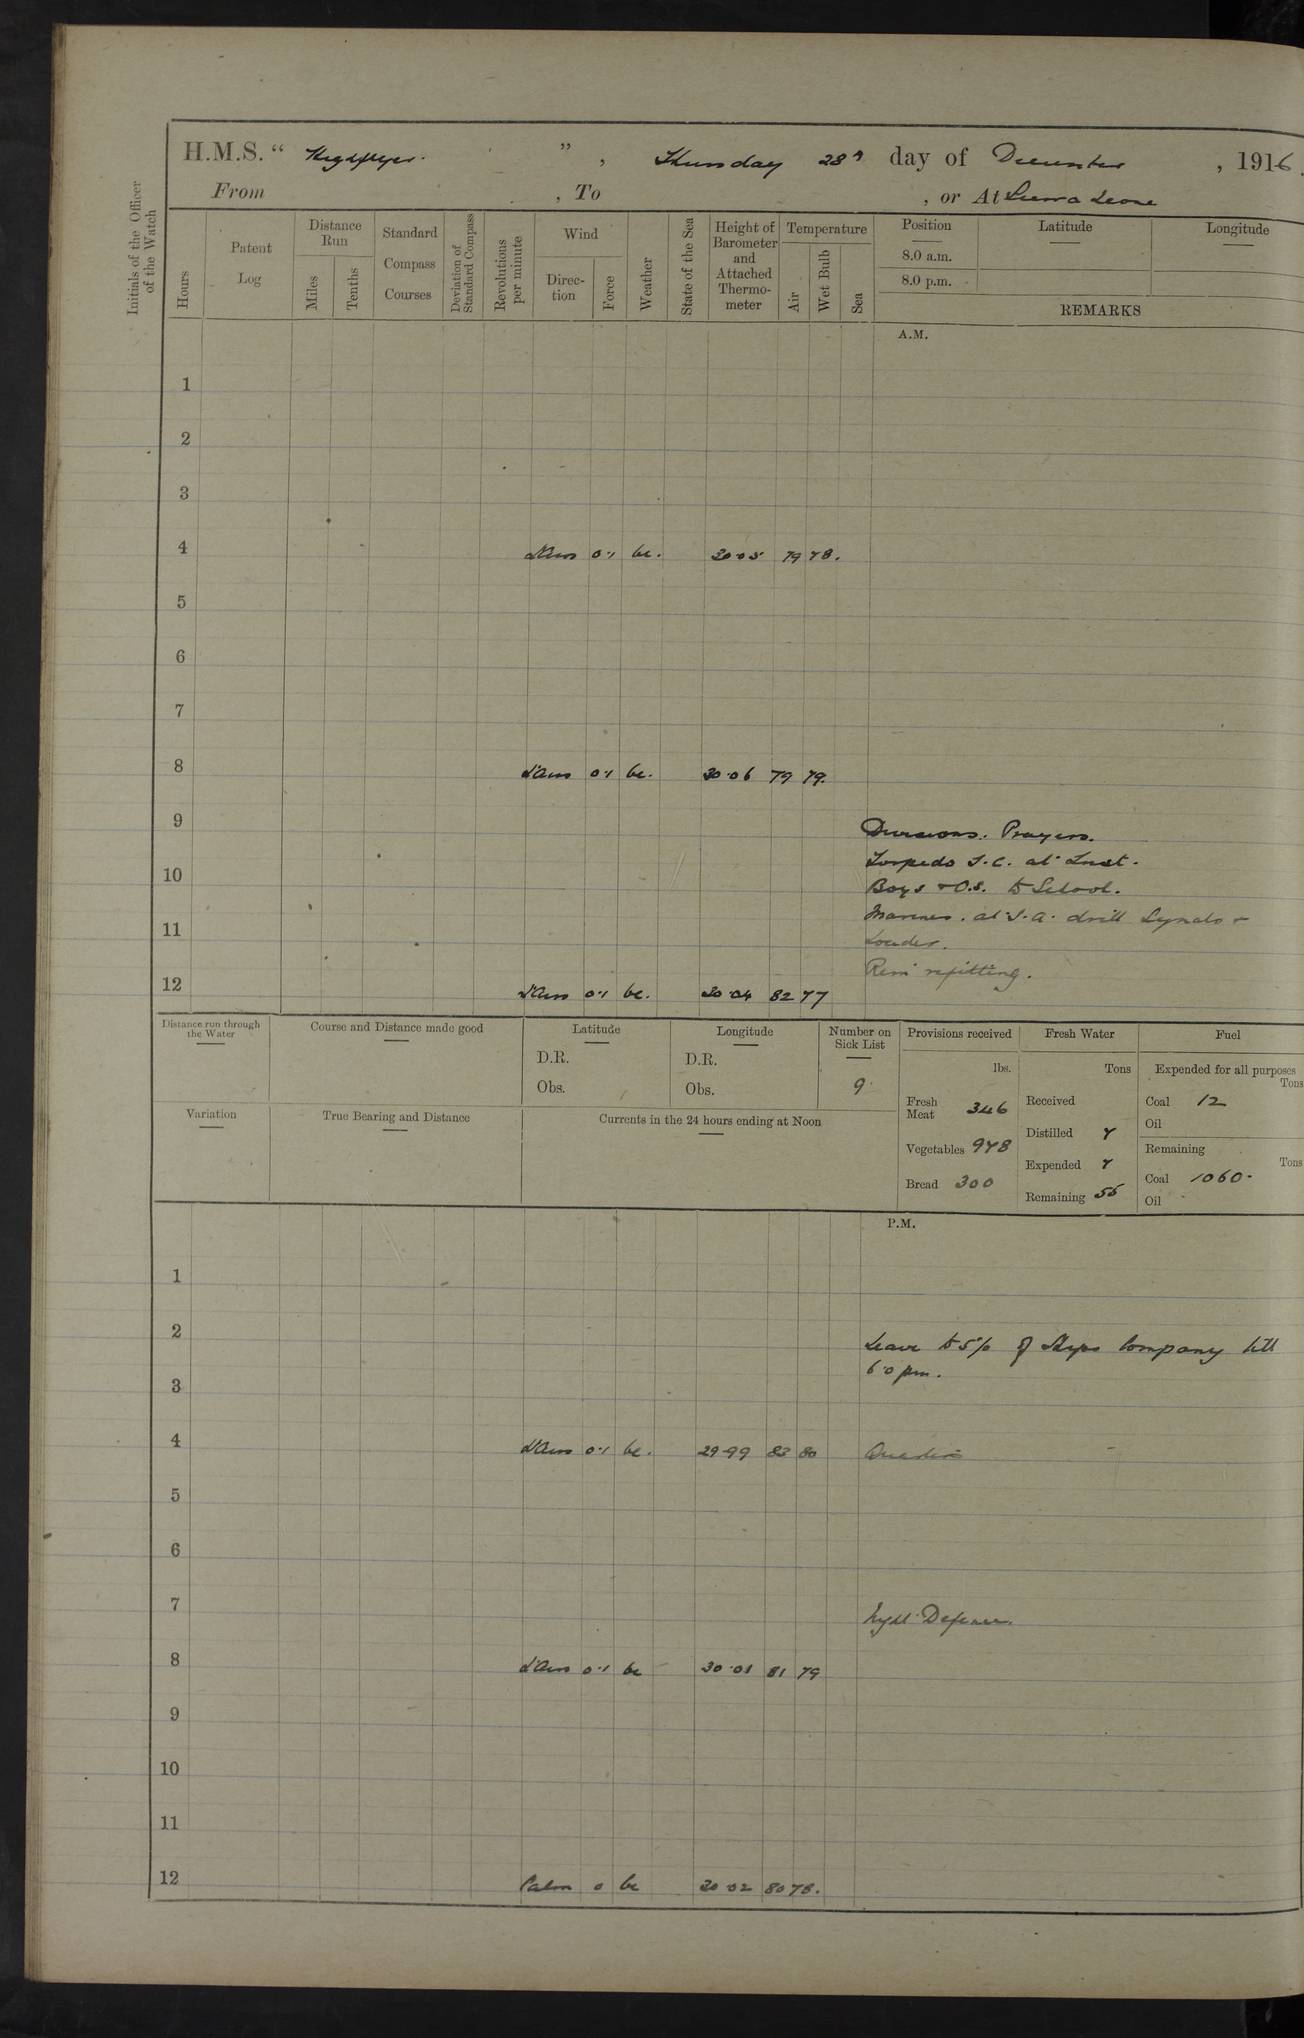 H.M.S. " Highflyer. " , Thursday 28th day of December , 1916.
From , To , or At Sierra Leone
Initials of the Officer of the Watch
Hours
Patent Log
Distance Run
Miles
Tenths
Standard Compass Courses
Deviation of Standard Compass
Revolutions per minute
Wind
Direction
Force
Weather
State of the Sea
Height of Barometer and Attached Thermometer
Temperature
Air
Wet Bulb
Sea
Position
8.0 a.m.
8.0 p.m.
Latitude
Longitude
REMARKS
A.M.
1
2
3
4 L'Airs 0·1 bc. 30·05 79 78.
5
6
7
8 L'Airs 0·1 bc. 30·06 79 79.
9 Divisions. Prayers.
Torpedo T.C. at Inst.
10 Boys & O.S. to School.
Marines. at S.A. drill Signals &
11 Loader.
Rem refitting.
12 L'Airs 0·1 bc. 30·04 82 77
Distance run through the Water
Course and Distance made good
Latitude
D.R.
Obs.
Longitude
D.R.
Obs.
Number on Sick List
9
Provisions received
lbs.
Fresh Meat 346
Vegetables 978
Bread 300
Fresh Water
Tons
Received
Distilled 7
Expended 7
Remaining 55
Fuel
Expended for all purposes
Tons
Coal 12
Oil
Remaining
Tons
Coal 1060.
Oil
Variation
True Bearing and Distance
Currents in the 24 hours ending at Noon
P.M.
1
2 Leave to 5% of Ships Company till
6·0 pm.
3
4 L'Airs 0·1 bc. 29·99 83 80 Quarters
5
6
7 Night Defence.
8 L'Airs 0·1 bc 30·01 81 79
9
10
11
12 Calm 0 bc 30·02 80 78.